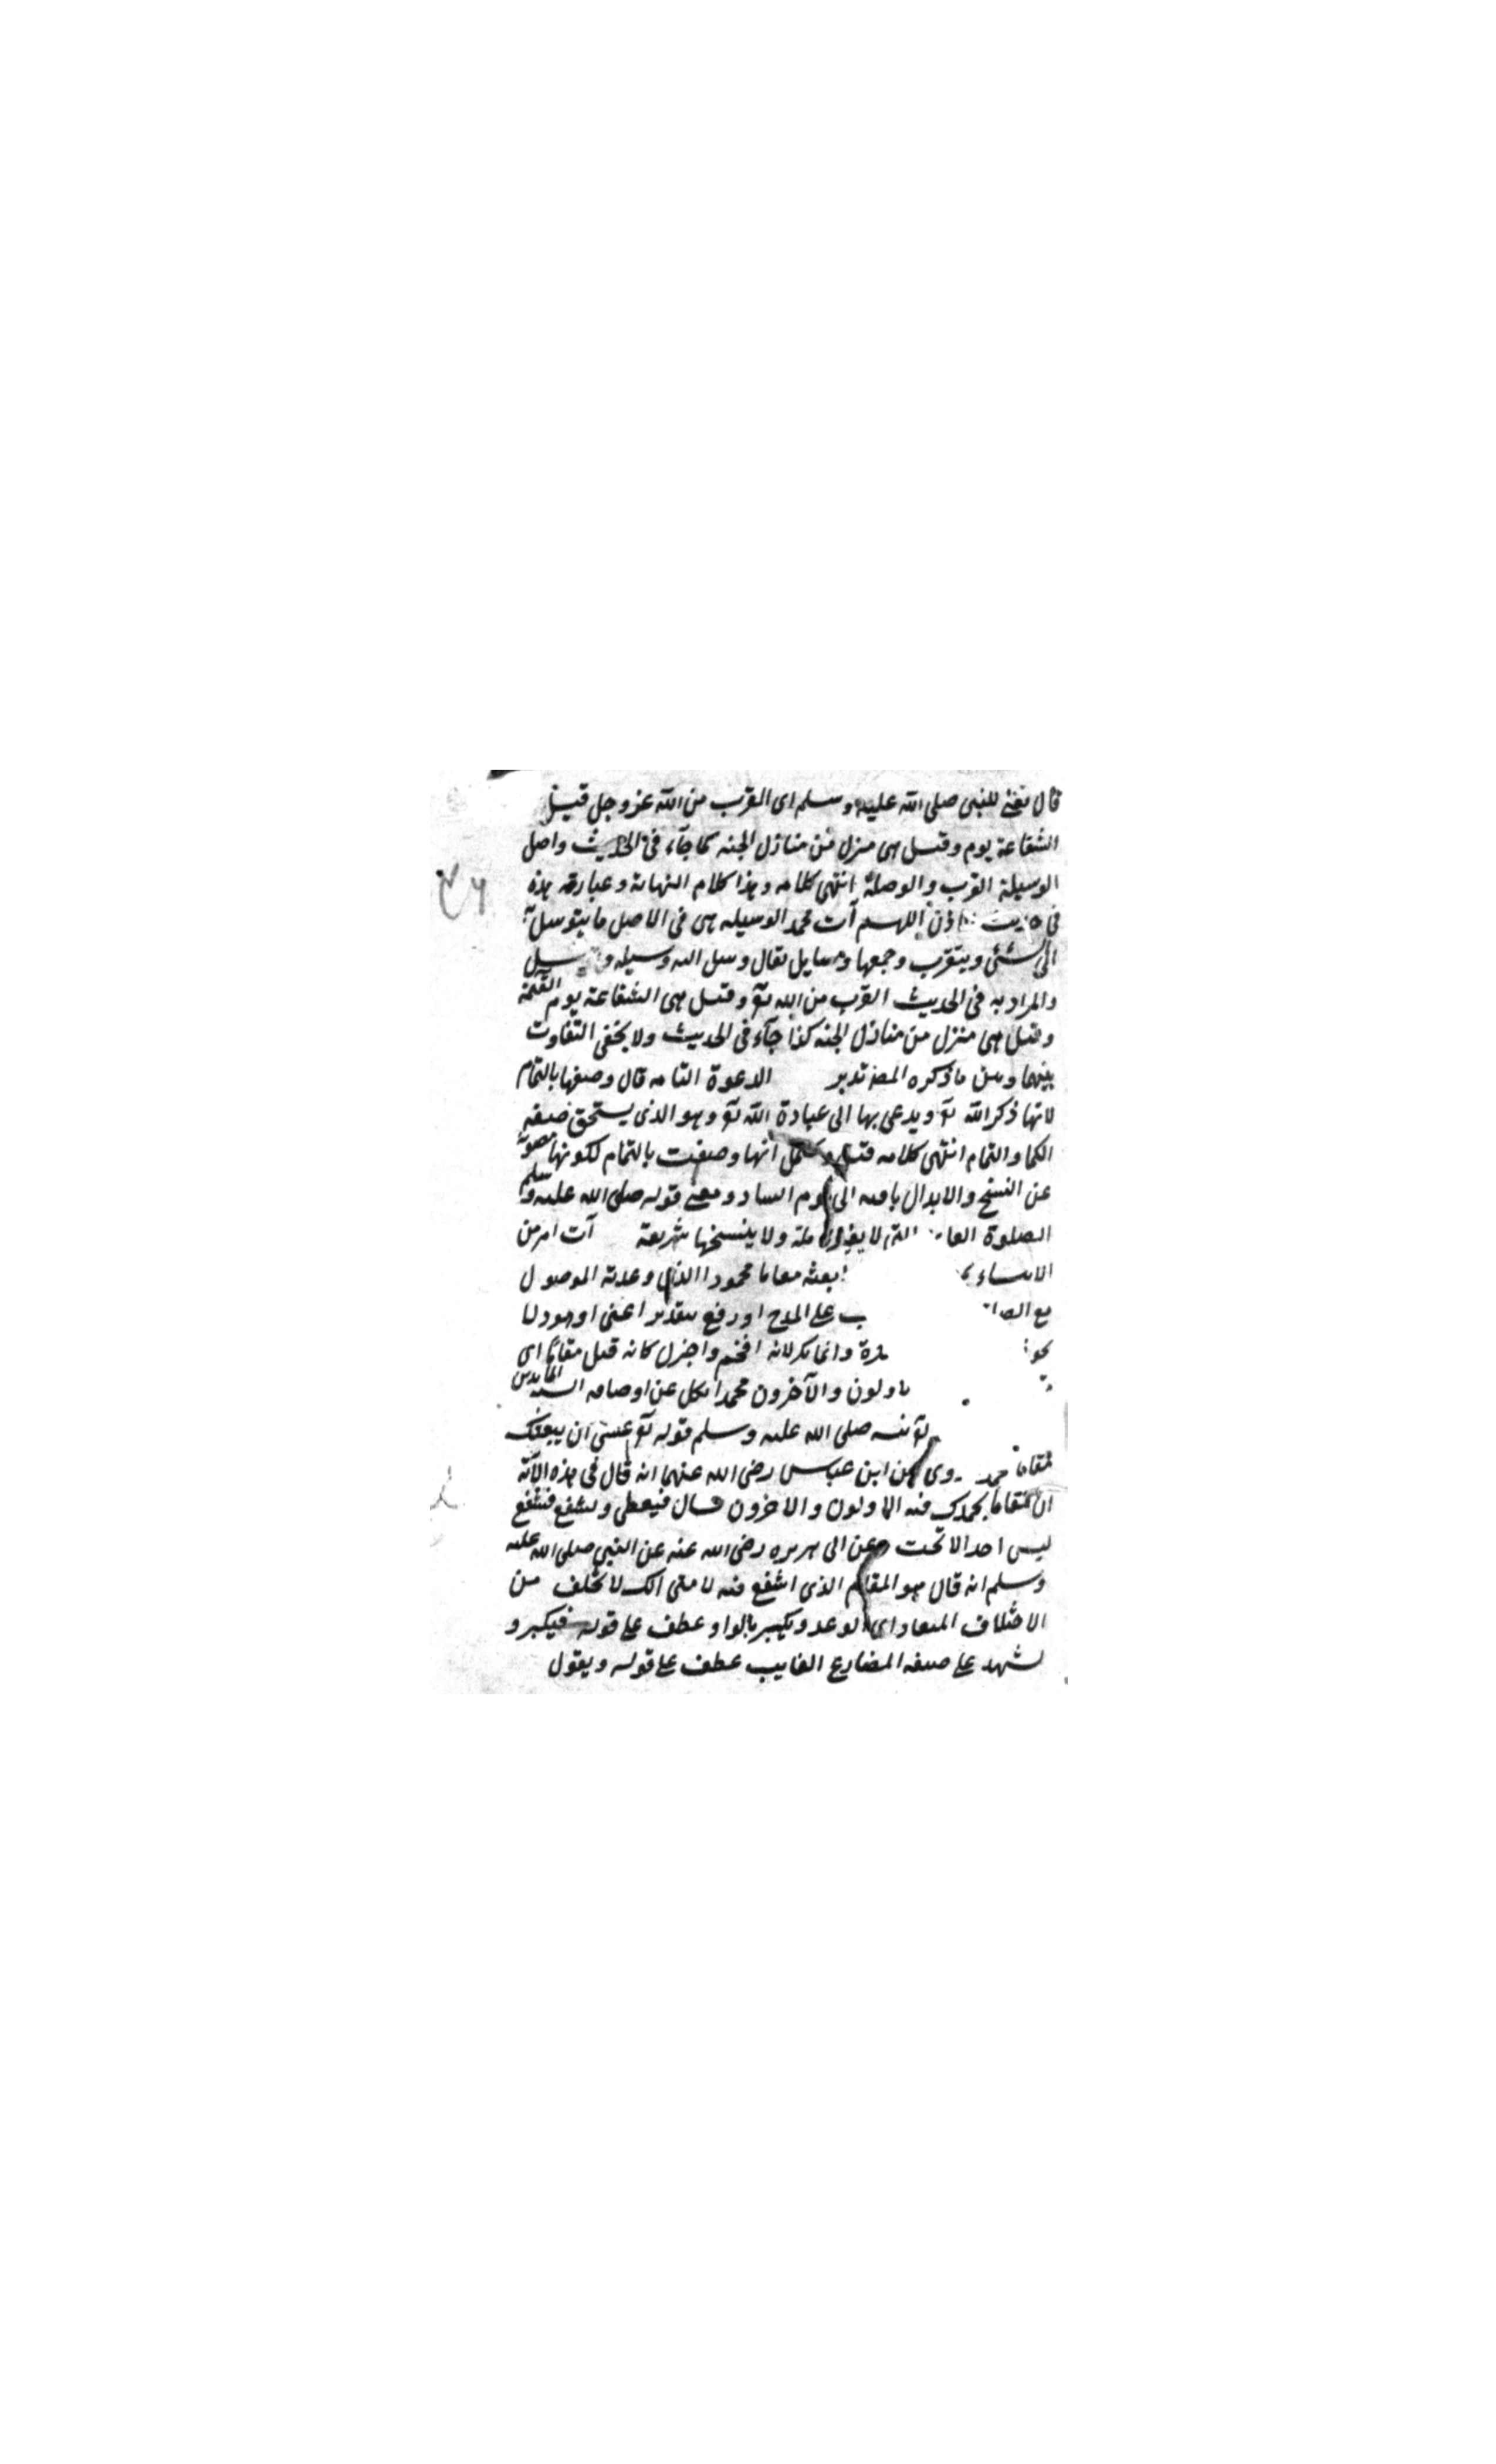 قال يعني للنبي صلى الله عليه وسلم اى القرب من الله عز وجل قيل
الشفاعة يوم وقيل هى منزل من منازل الجنه كما جآء فى الحديث واصل
الوسيلة القرب والوصلة انتهى كلامه وهذا كلام النهاية وعبارته هذه
فى اللهم آت محمد الوسيله هى فى الاصل ما يتوسل به
الى الشئ ويتقرب وجمعها وسايل يقال وسل اليه وسيله و
والمراد به فى الحديث القرب من الله تع وقيل هى الشفاعة يوم القيمة
وقيل هى منزل من منازل الجنه كذا جآء فى الحديث ولا يخفى التفاوت
بينهما وبين ما ذكره المص تدبر الدعوة التامه قال وصفها بالتمام
لانها ذكر الله تع ويدعى بها الى عبادة الله تع وهو الذى يستحق صفه
الكما والتمام انتهى كلامه قيل ويحتمل انها وصفت بالتمام لكونها مصونة
عن النسخ والابدال باقيه الى يوم التناد ومعنى قوله صلى الله عليه وسلم
الصلوة لا يغيرها ملة ولا ينسخها شريعة آت امر من
الايتاء ابعثه مقاما محمودا الذى وعدته الموصول
مع على المدح او رفع بتقدير اعنى او هو
وانما نكر لانه افخم واجزل كانه قيل مقاما اى
والآخرون محمدا يكل عن اوصافه السنة الحامدين
صلى الله عليه وسلم قوله تع عسى ان يبعثك
مقاما عن ابن عباس رضى الله عنهما انه قال فى هذه الآية
اى مقاما يحمدك فيه الاولون والاخرون تسال فتعطى وتشفع فتشفع
ليس احد الا تحت وعن ابى هريره رضى الله عنه عن النبى صلى الله عليه
وسلم انه قال هو المقام الذى اشفع فيه لامتى انك لا تخلف من
الاخلاف الميعاد اى الوعد ويكبر بالواو عطف على قوله فيكبر و
يشهد على صيغه المضارع الغايب عطف على قوله ويقول